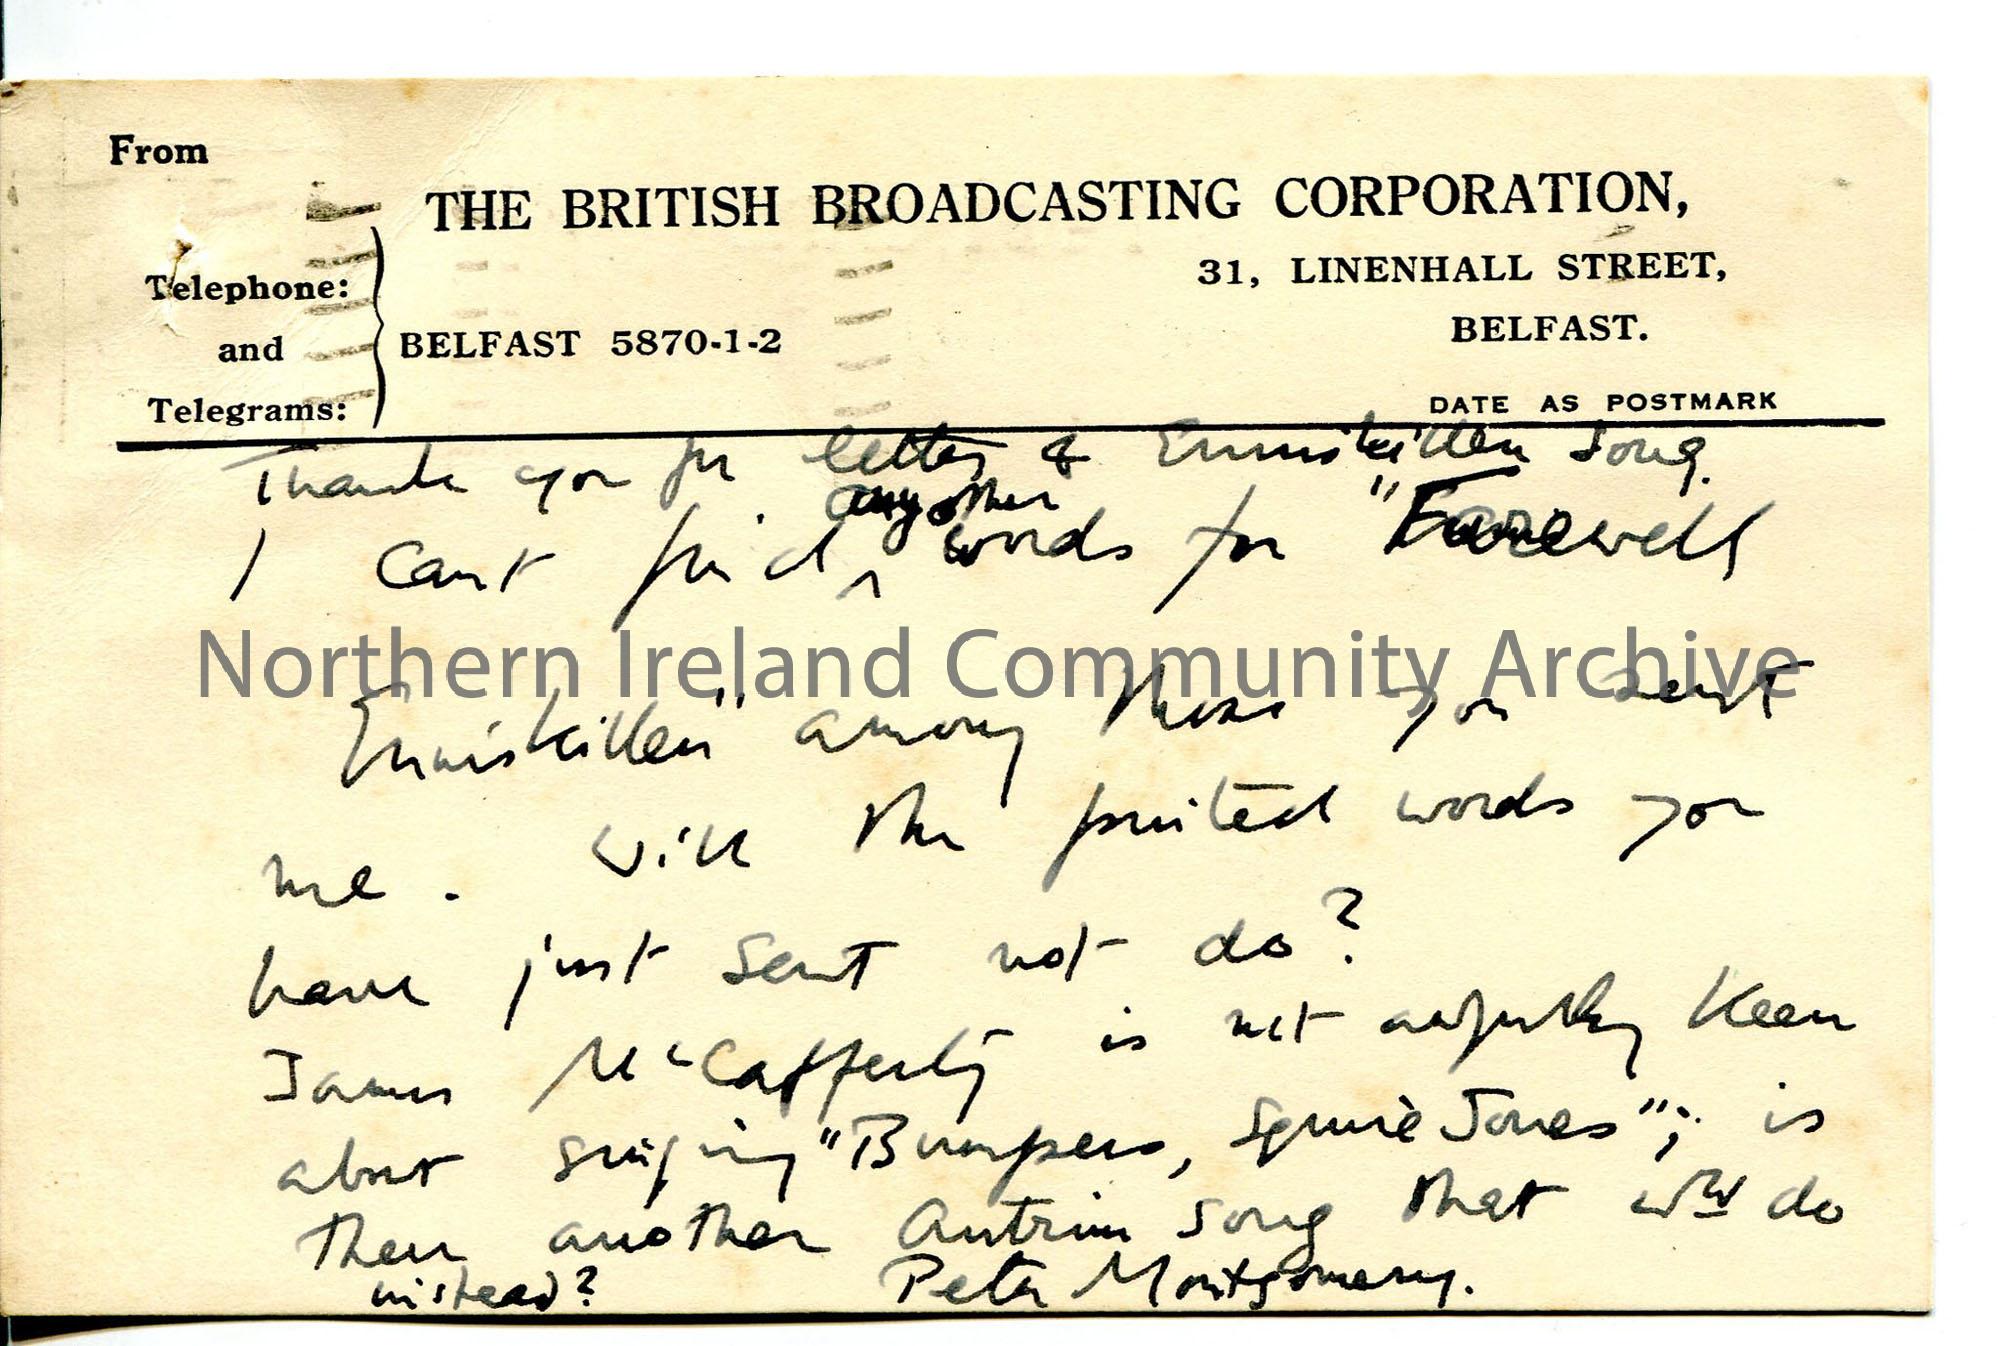 From
THE BRITISH BROADCASTING CORPORATION,
31, LINENHALL STREET,
BELFAST.
Telephone:
and
Telegrams:
BELFAST 5870-1-2
DATE AS POSTMARK
Thank you for letter & Enniskillen Song.
any other
I cant find ^ words for "Farewell
Northern Ireland Community Archive
Enniskillen" among those you sent
me. Will the printed words you
have just sent not do?
James McCafferty is not awfully keen
about singing "Bumpers, Squire Jones"; is
there another Antrim song that wld do
instead? Peter Montgomery.